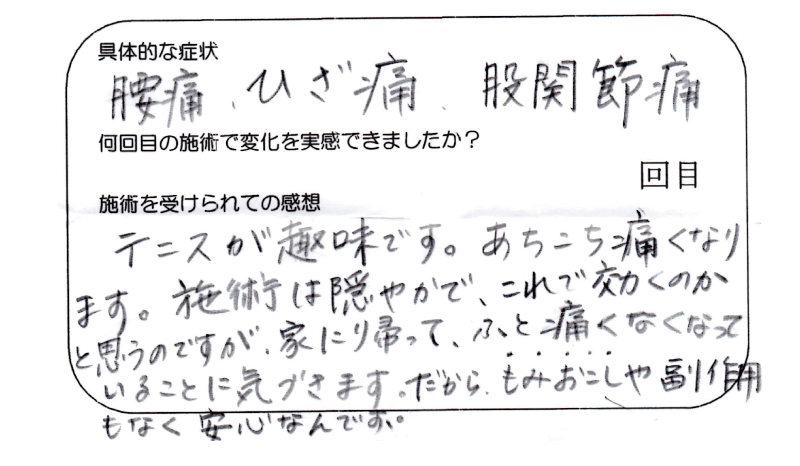 具体的な症状
腰痛、ひざ痛、股関節痛
何回目の施術で変化を実感できましたか？
回目
施術を受けられての感想
テニスが趣味です。あちこち痛くなり
ます。施術は隠やかで、これで効くのか
と思うのですが、家にり帰って、ふと痛くなくなって
いることに気づきます。だから、もみおこしや副作用
もなく安心なんです。